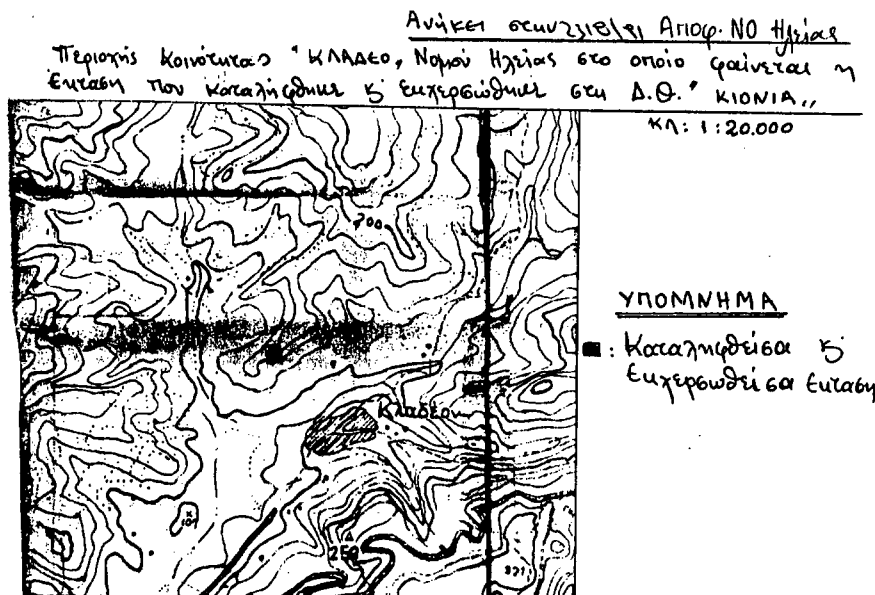 Ανήκει στην 2318/81 Αποφ. ΝΟ Ηλείας
Περιοχής Κοινότητας "ΚΛΑΔΕΟ, Νομού Ηλείας στο οποίο φαίνεται η
έκταση που καταλήφθηκε κ' εκχερσώθηκε στη Δ.Θ. "ΚΙΟΝΙΑ,,
ΚΛ: 1:20.000
200
ΥΠΟΜΝΗΜΑ
: Καταληφθείσα κ'
Εκχερσωθείσα έκταση
Κλαδέος
101
252